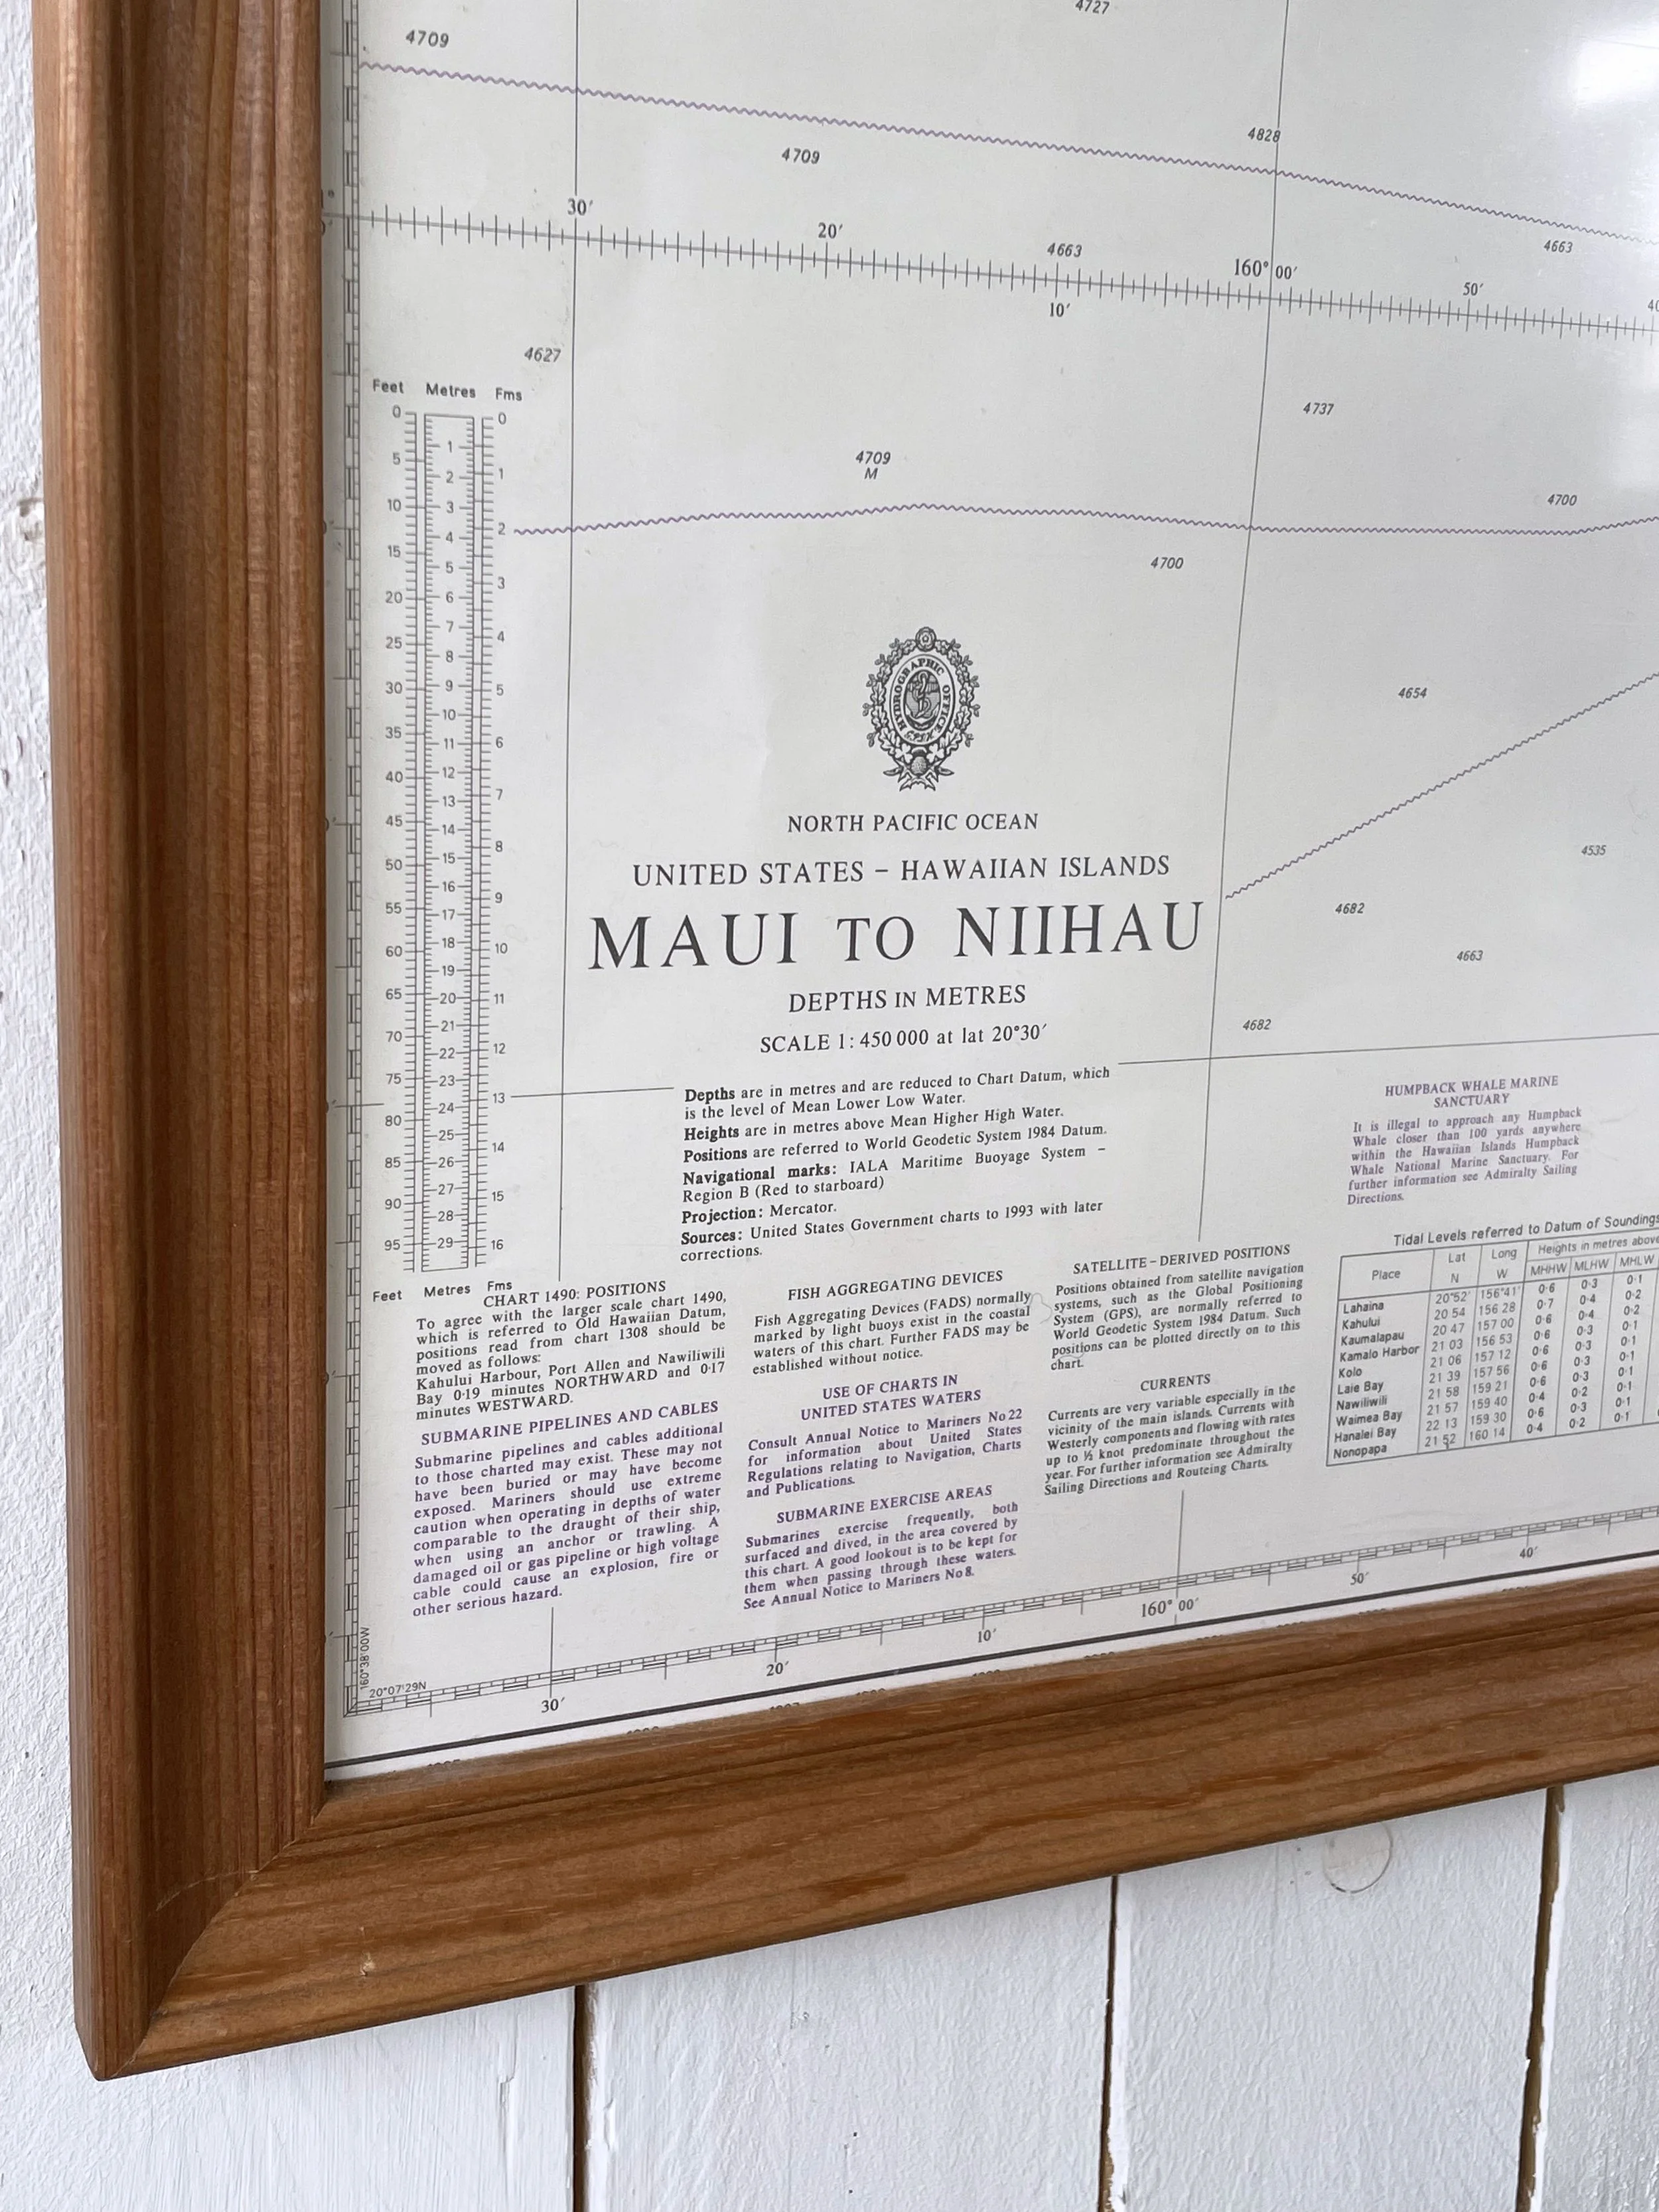 4727
4709
4828
4709
30′
20′
4663
4663
160° 00′
50′
10′
4627
Feet Metres Fms
0 0
1
5
2 1
10 3
4 2
15
5
20 6 3
7
25 8 4
30 9 5
10
35 11 6
40 12
13 7
45 14
15 8
50 16
55 17 9
18
60 19 10
65 20 11
21
70 22 12
75 23
24 13
80
25 14
85 26
27 15
90 28
95 29 16
Feet Metres Fms
4737
4709
M
4700
4700
4654
4535
4682
4663
4682
HYDROGRAPHIC OFFICE
NORTH PACIFIC OCEAN
UNITED STATES – HAWAIIAN ISLANDS
MAUI TO NIIHAU
DEPTHS IN METRES
SCALE 1:450 000 at lat 20°30′
Depths are in metres and are reduced to Chart Datum, which
is the level of Mean Lower Low Water.
Heights are in metres above Mean Higher High Water.
Positions are referred to World Geodetic System 1984 Datum.
Navigational marks: IALA Maritime Buoyage System –
Region B (Red to starboard)
Projection: Mercator.
Sources: United States Government charts to 1993 with later
corrections.
HUMPBACK WHALE MARINE
SANCTUARY
It is illegal to approach any Humpback
Whale closer than 100 yards anywhere
within the Hawaiian Islands Humpback
Whale National Marine Sanctuary. For
further information see Admiralty Sailing
Directions.
CHART 1490: POSITIONS
To agree with the larger scale chart 1490,
which is referred to Old Hawaiian Datum,
positions read from chart 1308 should be
moved as follows:
Kahului Harbour, Port Allen and Nawiliwili
Bay 0·19 minutes NORTHWARD and 0·17
minutes WESTWARD.
SUBMARINE PIPELINES AND CABLES
Submarine pipelines and cables additional
to those charted may exist. These may not
have been buried or may have become
exposed. Mariners should use extreme
caution when operating in depths of water
comparable to the draught of their ship,
when using an anchor or trawling. A
damaged oil or gas pipeline or high voltage
cable could cause an explosion, fire or
other serious hazard.
FISH AGGREGATING DEVICES
Fish Aggregating Devices (FADS) normally
marked by light buoys exist in the coastal
waters of this chart. Further FADS may be
established without notice.
USE OF CHARTS IN
UNITED STATES WATERS
Consult Annual Notice to Mariners No 22
for information about United States
Regulations relating to Navigation, Charts
and Publications.
SUBMARINE EXERCISE AREAS
Submarines exercise frequently, both
surfaced and dived, in the area covered by
this chart. A good lookout is to be kept for
them when passing through these waters.
See Annual Notice to Mariners No 8.
SATELLITE–DERIVED POSITIONS
Positions obtained from satellite navigation
systems, such as the Global Positioning
System (GPS), are normally referred to
World Geodetic System 1984 Datum. Such
positions can be plotted directly on to this
chart.
CURRENTS
Currents are very variable especially in the
vicinity of the main islands. Currents with
Westerly components and flowing with rates
up to ½ knot predominate throughout the
year. For further information see Admiralty
Sailing Directions and Routeing Charts.
Tidal Levels referred to Datum of Soundings
Place Lat N Long W Heights in metres above
MHHW MLHW MHLW
Lahaina 20°52′ 156°41′ 0·6 0·3 0·1
Kahului 20 54 156 28 0·7 0·4 0·2
Kaumalapau 20 47 157 00 0·6 0·4 0·2
Kamalo Harbor 21 03 156 53 0·6 0·3 0·1
Kolo 21 06 157 12 0·6 0·3 0·1
Laie Bay 21 39 157 56 0·6 0·3 0·1
Nawiliwili 21 58 159 21 0·6 0·3 0·1
Waimea Bay 21 57 159 40 0·4 0·2 0·1
Hanalei Bay 22 13 159 30 0·6 0·3 0·1
Nonopapa 21 52 160 14 0·4 0·2 0·1
160°38′00W
20°07′29N
30′
20′
10′
160° 00′
50′
40′